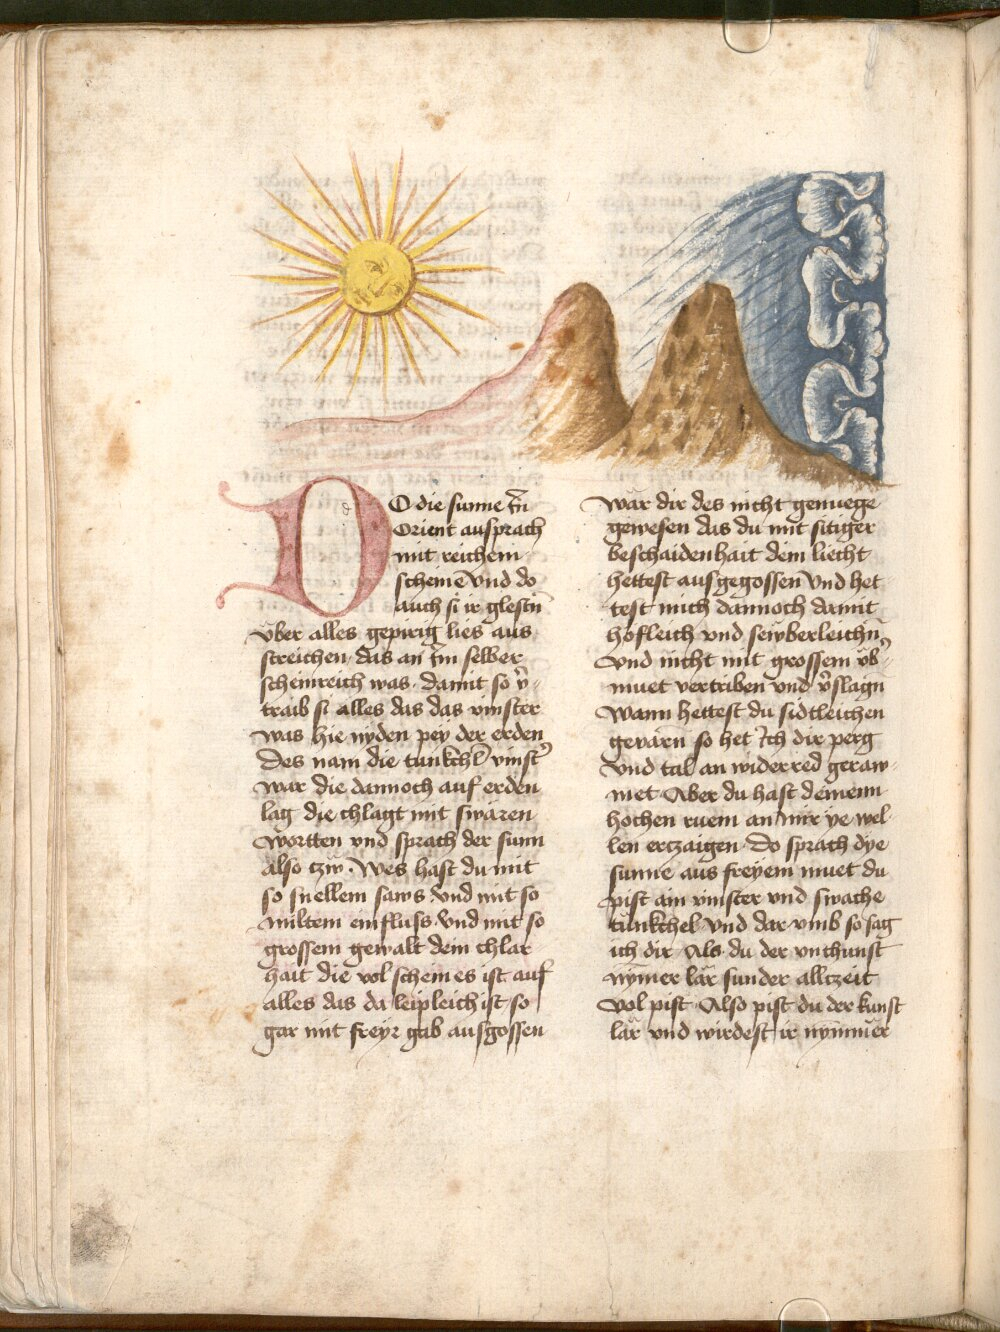 DO die sunne in
Orient ausprach
mit reichem
scheine vnd do
auch si ir glestñ
vber alles gepirig lies aus
streichen das an im selber
scheinreich was. damit so v̉-
traib si alles das das vinster
was hie nyden pey der erden
Des nam die tunkchl vinst̉
war die dannoch auf erden
lag die chlagt mit swären
wortten vnd sprach der sunn
also tzw. Wes hast du mit
so snellem saws vnd mit so
miltem einfluss vnd mit so
grossem gewalt dem chlar
hait die vol scheines ist auf
alles das da leipleich ist so
gar mit freyr gab ausgossen
wär dir des nicht genuege
gewesen das du mit sitiger
beschaidenhait dein liecht
hettest ausgegossen vnd het
test mich dannoch damit
hofleich vnd sewberleichñ
vnd nicht mit grossem v̈b̉
muet vertriben vnd v̉slagñ
Wann hettest du sidtleichen
gevarn so het ich dir perg
vnd tal an widerred geraw-
met Aber du hast deinenn
hochen ruem an mir ye wel-
len ertzaigen Do sprach dye
sunne aus freyem muet du
pist ain vinster vnd swache
tunkchel vnd dar vmb so sag
ich dir Als du der vnchunst
nymer lär sunder alltzeit
vol pist Also pist du der kunst
lär vnd wirdest ir nymmer